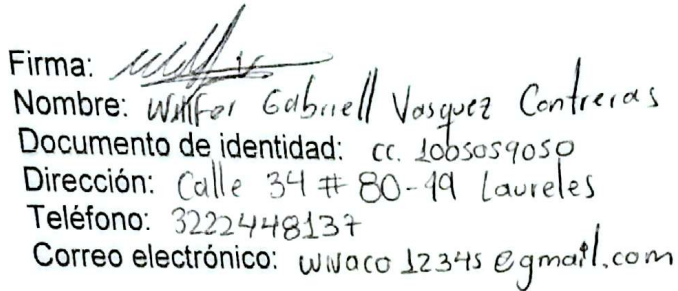 Firma:
Nombre: Willfer Gabriell Vasquez Contreras
Documento de identidad: cc. 1005059050
Dirección: Calle 34 # 80-19 Laureles
Teléfono: 3222448137
Correo electrónico: wivaco12345@gmail.com